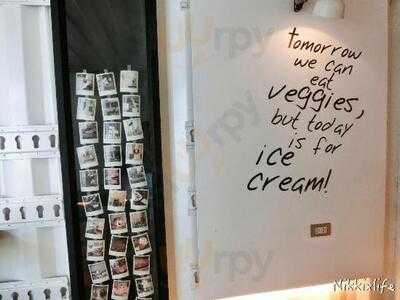 tomorrow
we can
eat
veggies,
but today
is for
ice
cream!
Nikkixlife